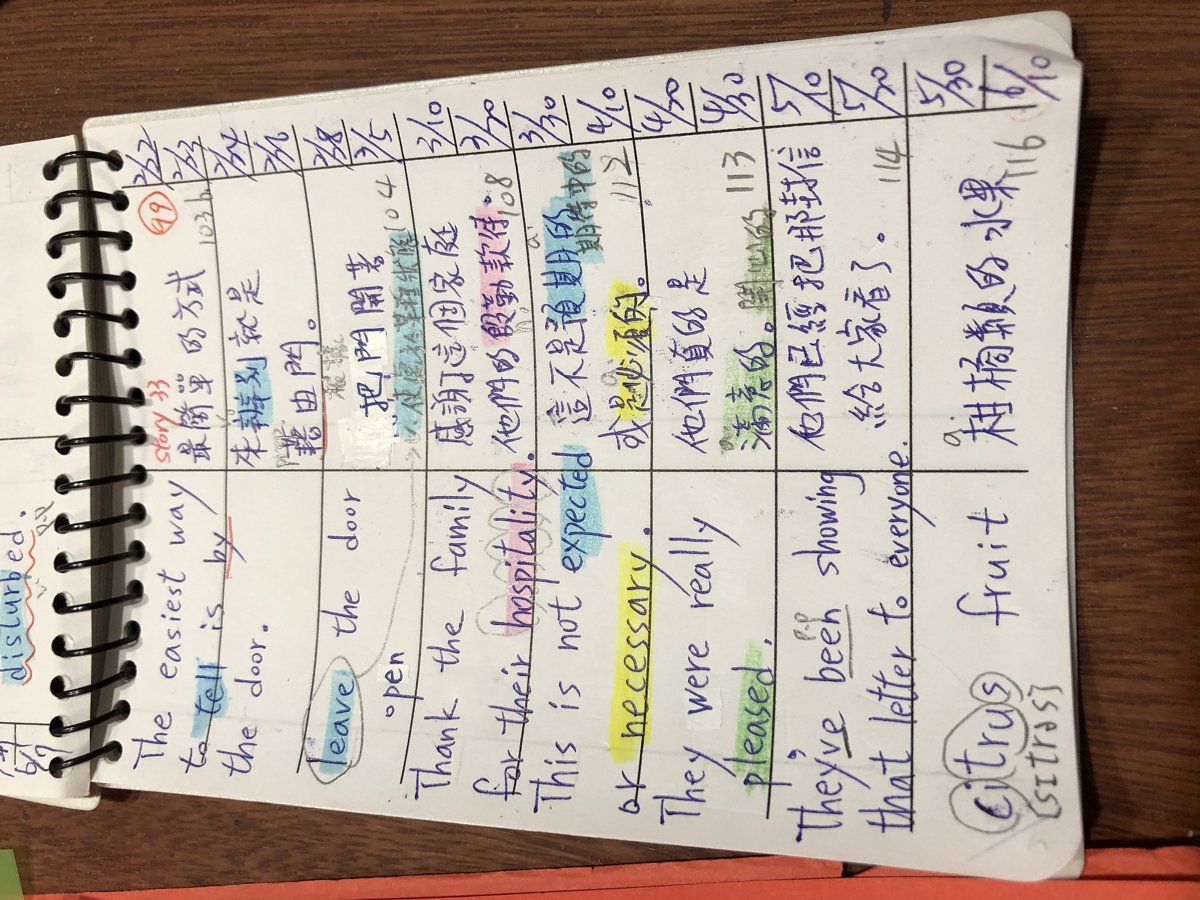 disturbed.
p.p
6/7
The easiest way
to tell is by
the door.
story 33
99
最簡單的方式
來辨別就是
103b
藉由門。
leave the door
open
把門開著
使處於某種狀態
104
Thank the family
for their hospitality.
感謝了這個家庭
他們的殷勤款待。
108
This is not expected
or necessary.
這不是預期的
期待中的
或是必須的。
112
They were really
pleased.
他們真的是
滿意的。開心的
113
They've been showing
p.p
that letter to everyone.
他們已經把那封信
給大家看了。
114
Citrus fruit
[sitrəs]
a
柑橘類的水果
116
2/22
2/23
2/24
2/26
2/28
3/5
3/10
3/20
3/30
4/10
4/20
4/30
5/10
5/20
5/30
6/10